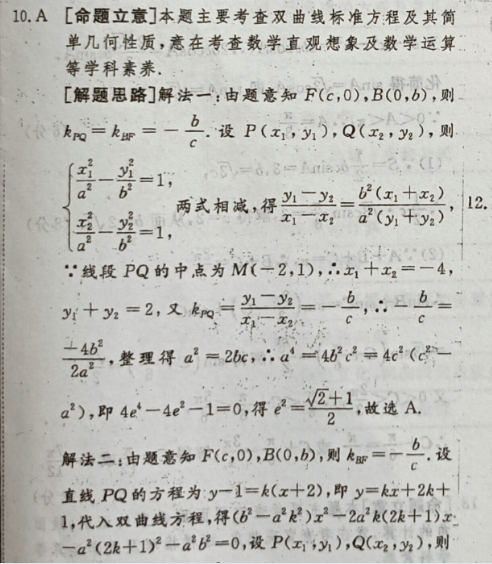 10. A [命题立意]本题主要考查双曲线标准方程及其简
单几何性质,意在考查数学直观想象及数学运算
等学科素养.
[解题思路]解法一:由题意知 F(c,0),B(0,b),则
k_{PQ}=k_{BF}=-\frac{b}{c}. 设 P(x₁,y₁),Q(x₂,y₂),则
\begin{cases}\frac{x_1^2}{a^2}-\frac{y_1^2}{b^2}=1,\\\frac{x_2^2}{a^2}-\frac{y_2^2}{b^2}=1,\end{cases} 两式相减,得\frac{y_1-y_2}{x_1-x_2}=\frac{b^2(x_1+x_2)}{a^2(y_1+y_2)},
12.
∵线段 PQ 的中点为 M(-2,1),∴x₁+x₂=-4,
y₁+y₂=2,又 k_{PQ}=\frac{y_1-y_2}{x_1-x_2}=-\frac{b}{c},∴-\frac{b}{c}=
\frac{-4b^2}{2a^2},整理得 a²=2bc,∴a⁴=4b²c²=4c²(c²-
a²),即 4e⁴-4e²-1=0,得 e²=\frac{\sqrt{2}+1}{2},故选 A.
解法二:由题意知 F(c,0),B(0,b),则 k_{BF}=-\frac{b}{c}. 设
直线 PQ 的方程为 y-1=k(x+2),即 y=kx+2k+
1,代入双曲线方程,得(b²-a²k²)x²-2a²k(2k+1)x
-a²(2k+1)²-a²b²=0,设 P(x₁,y₁),Q(x₂,y₂),则